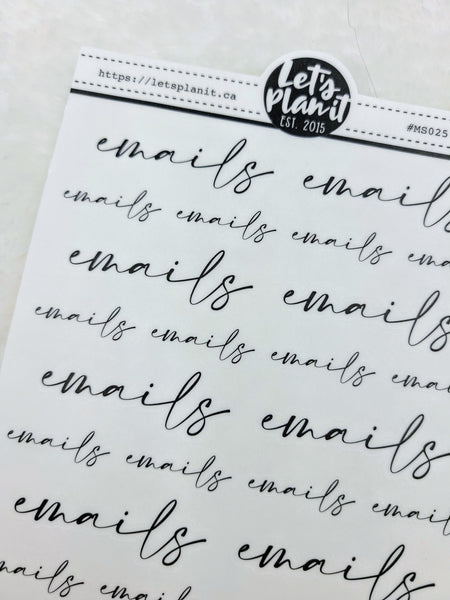 https://letsplanit.ca
Let's
Plan it
EST. 2015
#MS025
emails emails
emails emails emails emails
emails emails
emails emails emails emails
emails emails
emails emails emails emails
emails emails
emails emails